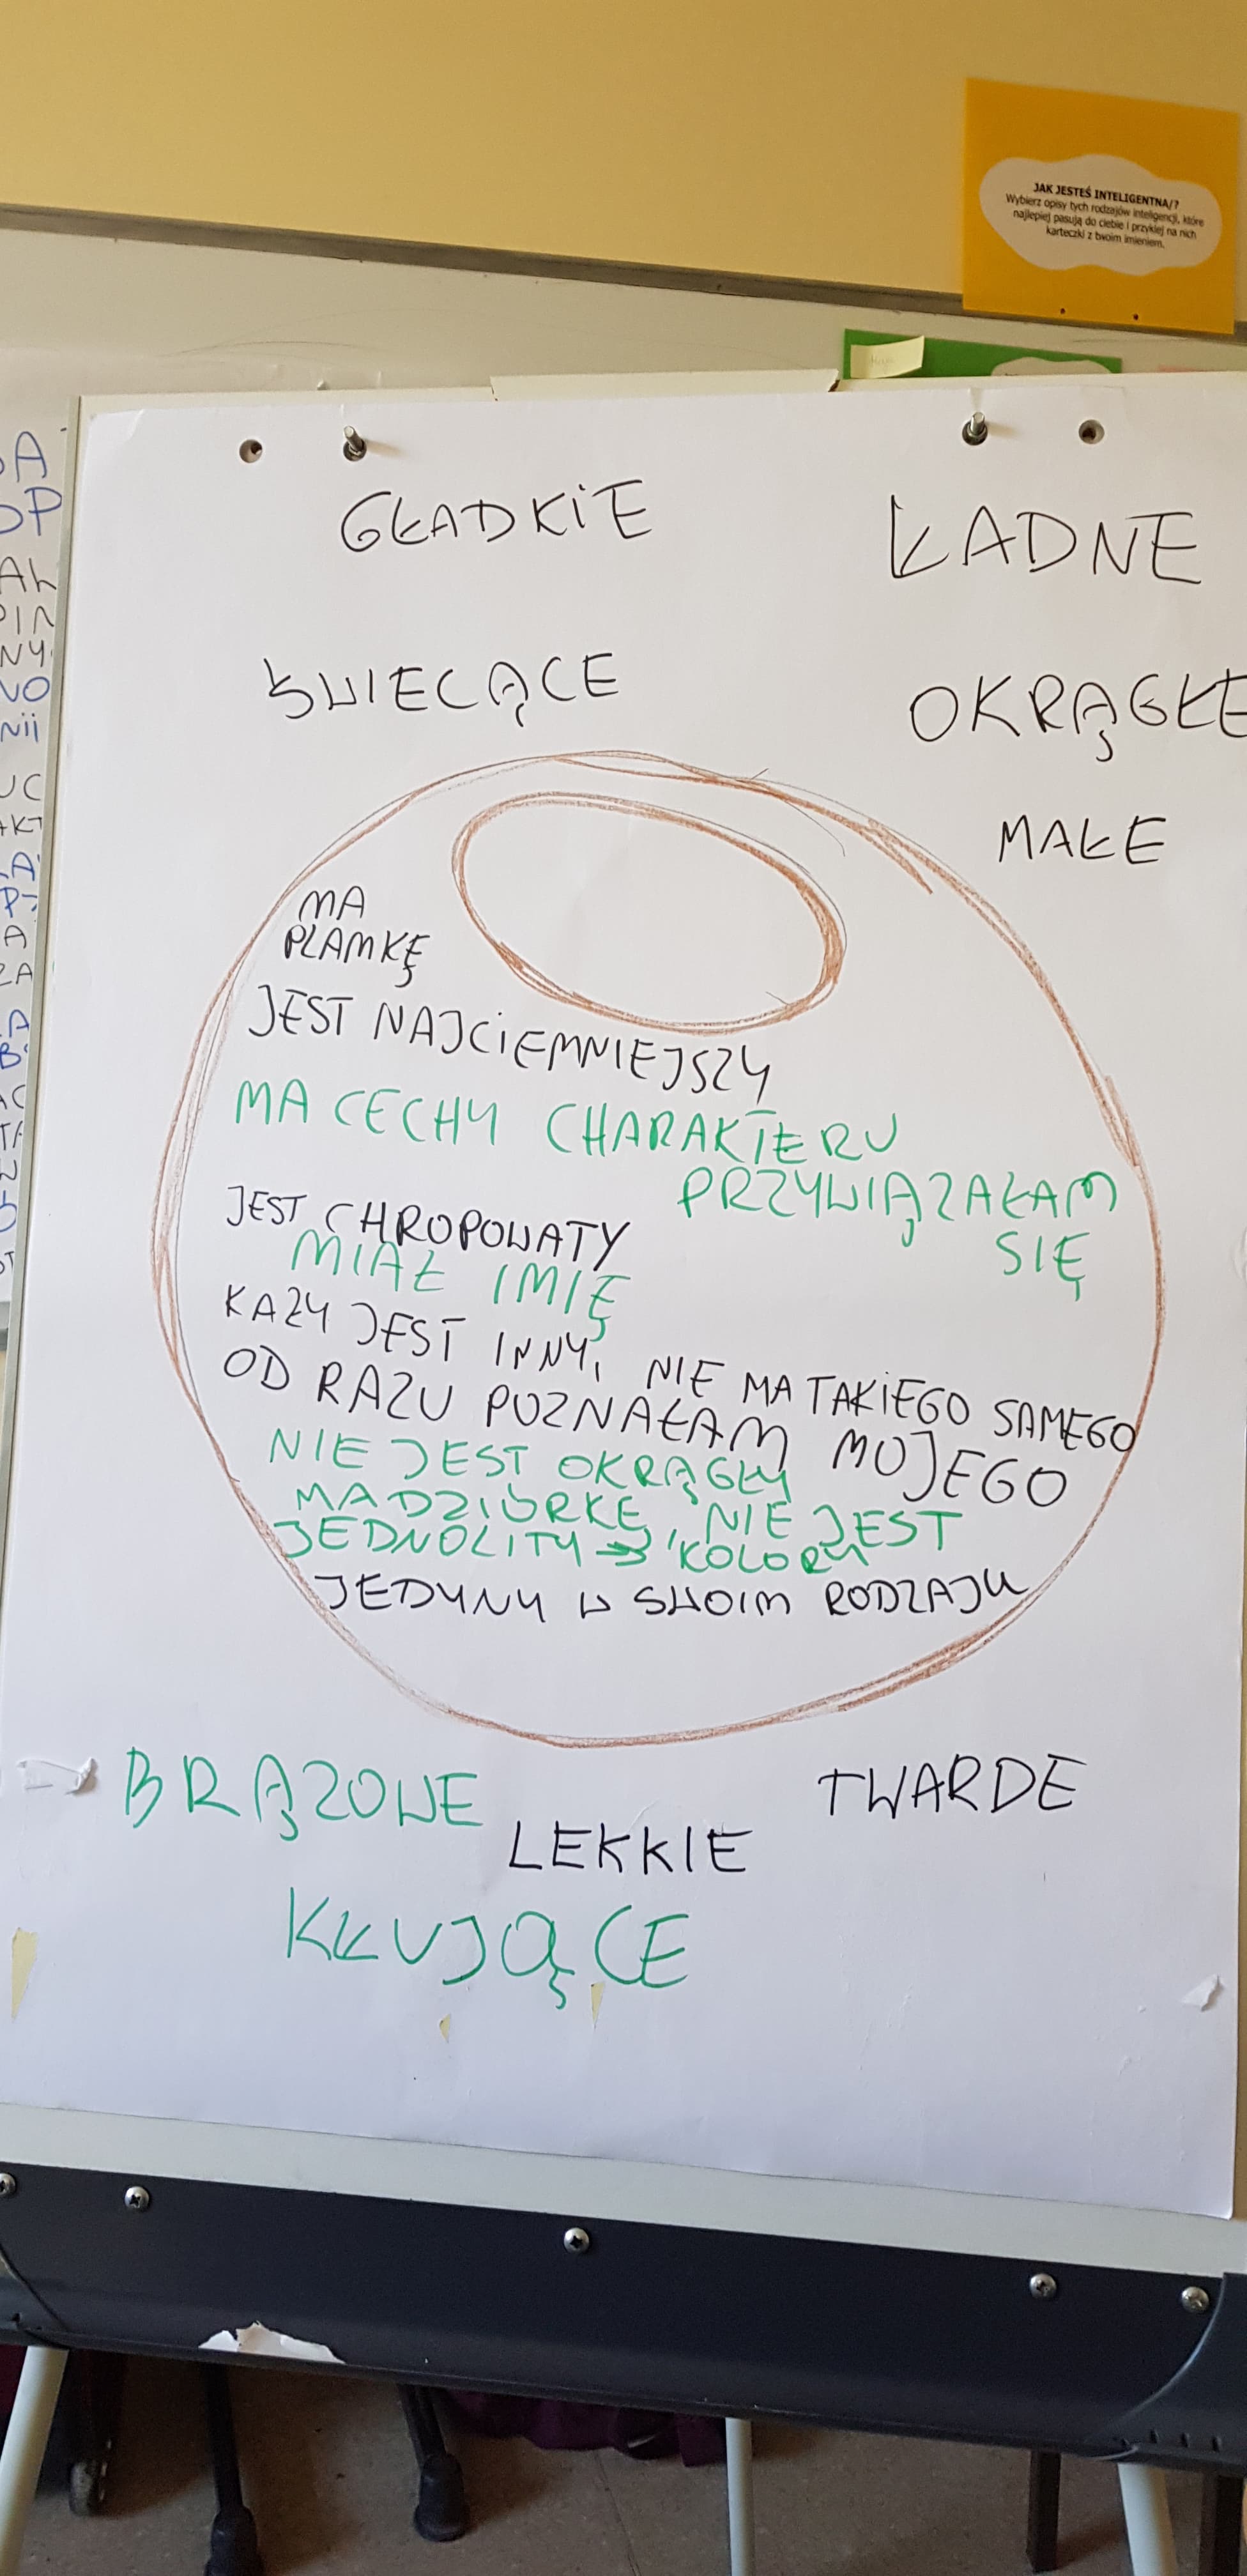 JAK JESTEŚ INTELIGENTNA/?
Wybierz opisy tych rodzajów inteligencji, które
najlepiej pasują do ciebie i przyklej na nich
karteczki z twoim imieniem.
GŁADKIE
ŁADNE
ŚWIECĄCE
OKRĄGŁE
MAŁE
MA
PLAMKĘ
JEST NAJCIEMNIEJSZY
MA CECHY CHARAKTERU
PRZYWIĄZAŁAM
SIĘ
JEST CHROPOWATY
MIAŁ IMIĘ
KAZY JEST INNY, NIE MA TAKIEGO SAMEGO
OD RAZU POZNAŁAM MOJEGO
NIE JEST OKRĄGŁY
MA DZIÓRKĘ, NIE JEST
JEDNOLITY → KOLORY
JEDYNY W SWOIM RODZAJU
BRĄZOWE
TWARDE
LEKKIE
KŁUJĄCE